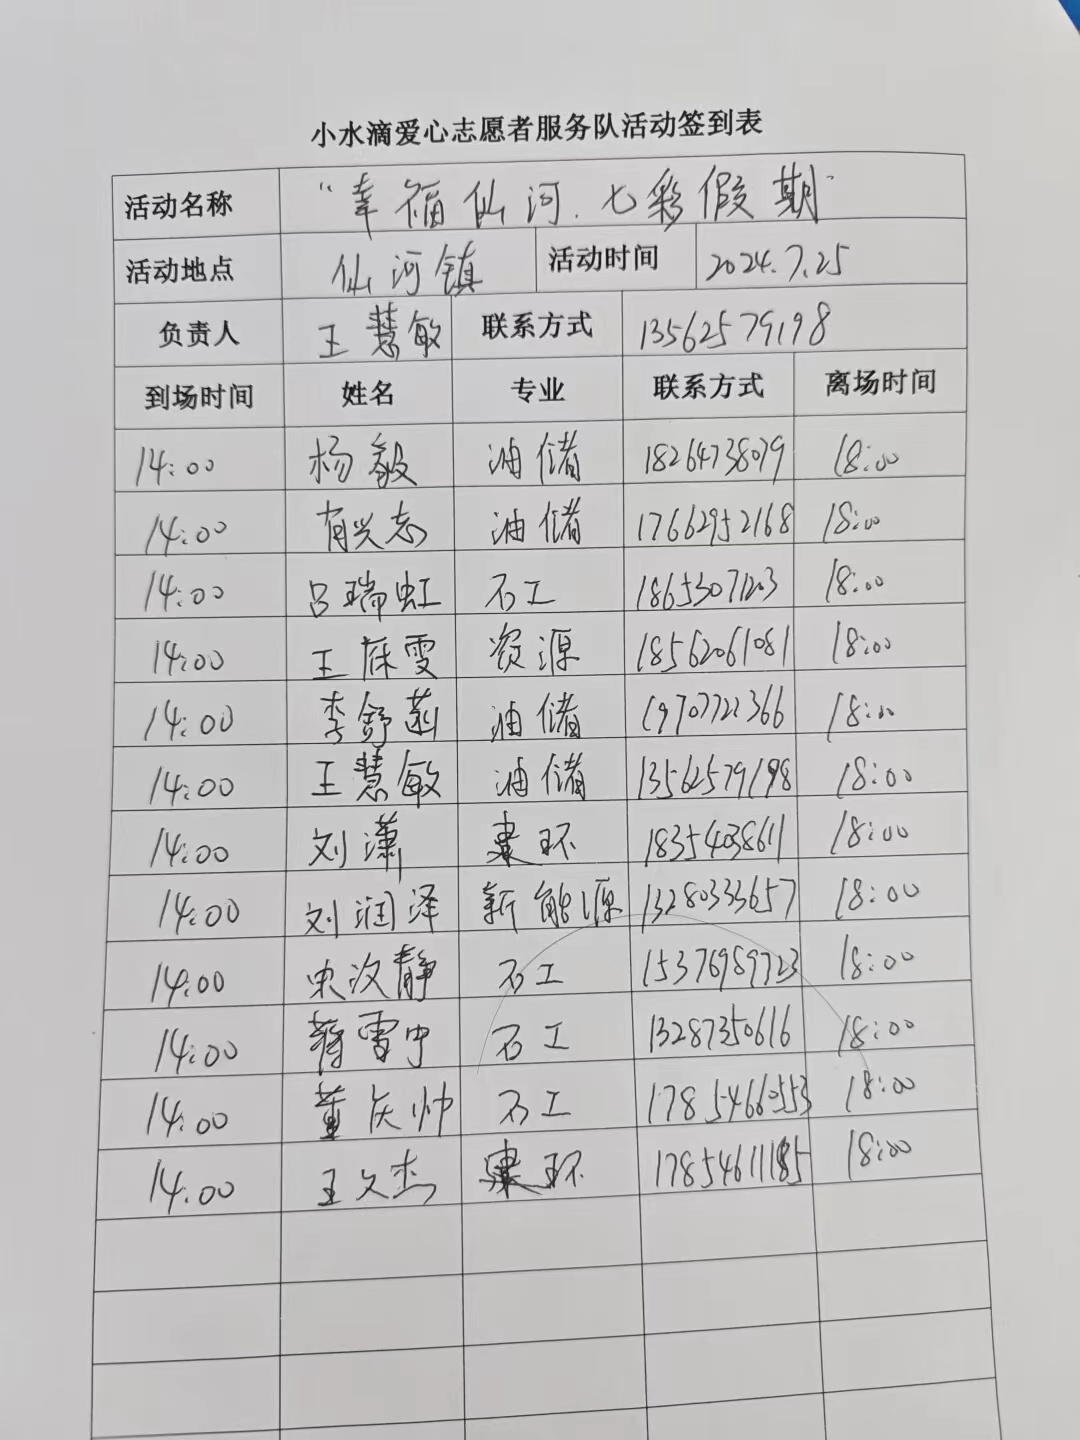 小水滴爱心志愿者服务队活动签到表
活动名称 “幸福仙河.七彩假期”
活动地点 仙河镇 活动时间 2024.7.25
负责人 王慧敏 联系方式 13562579198
到场时间 姓名 专业 联系方式 离场时间
14:00 杨毅 油储 18264738079 18:00
14:00 肖兴志 油储 17662952168 18:00
14:00 吕瑞虹 石工 18653071203 18:00
14:00 王琛雯 资源 18562061081 18:00
14:00 李舒菡 油储 19707721366 18:00
14:00 王慧敏 油储 13562579198 18:00
14:00 刘潇 建环 18354038611 18:00
14:00 刘润泽 新能源 13280333657 18:00
14:00 宋汶静 石工 15376989723 18:00
14:00 石工 13287350616 18:00
14:00 董庆帅 石工 17854660553 18:00
14:00 王文杰 建环 17854611185 18:00